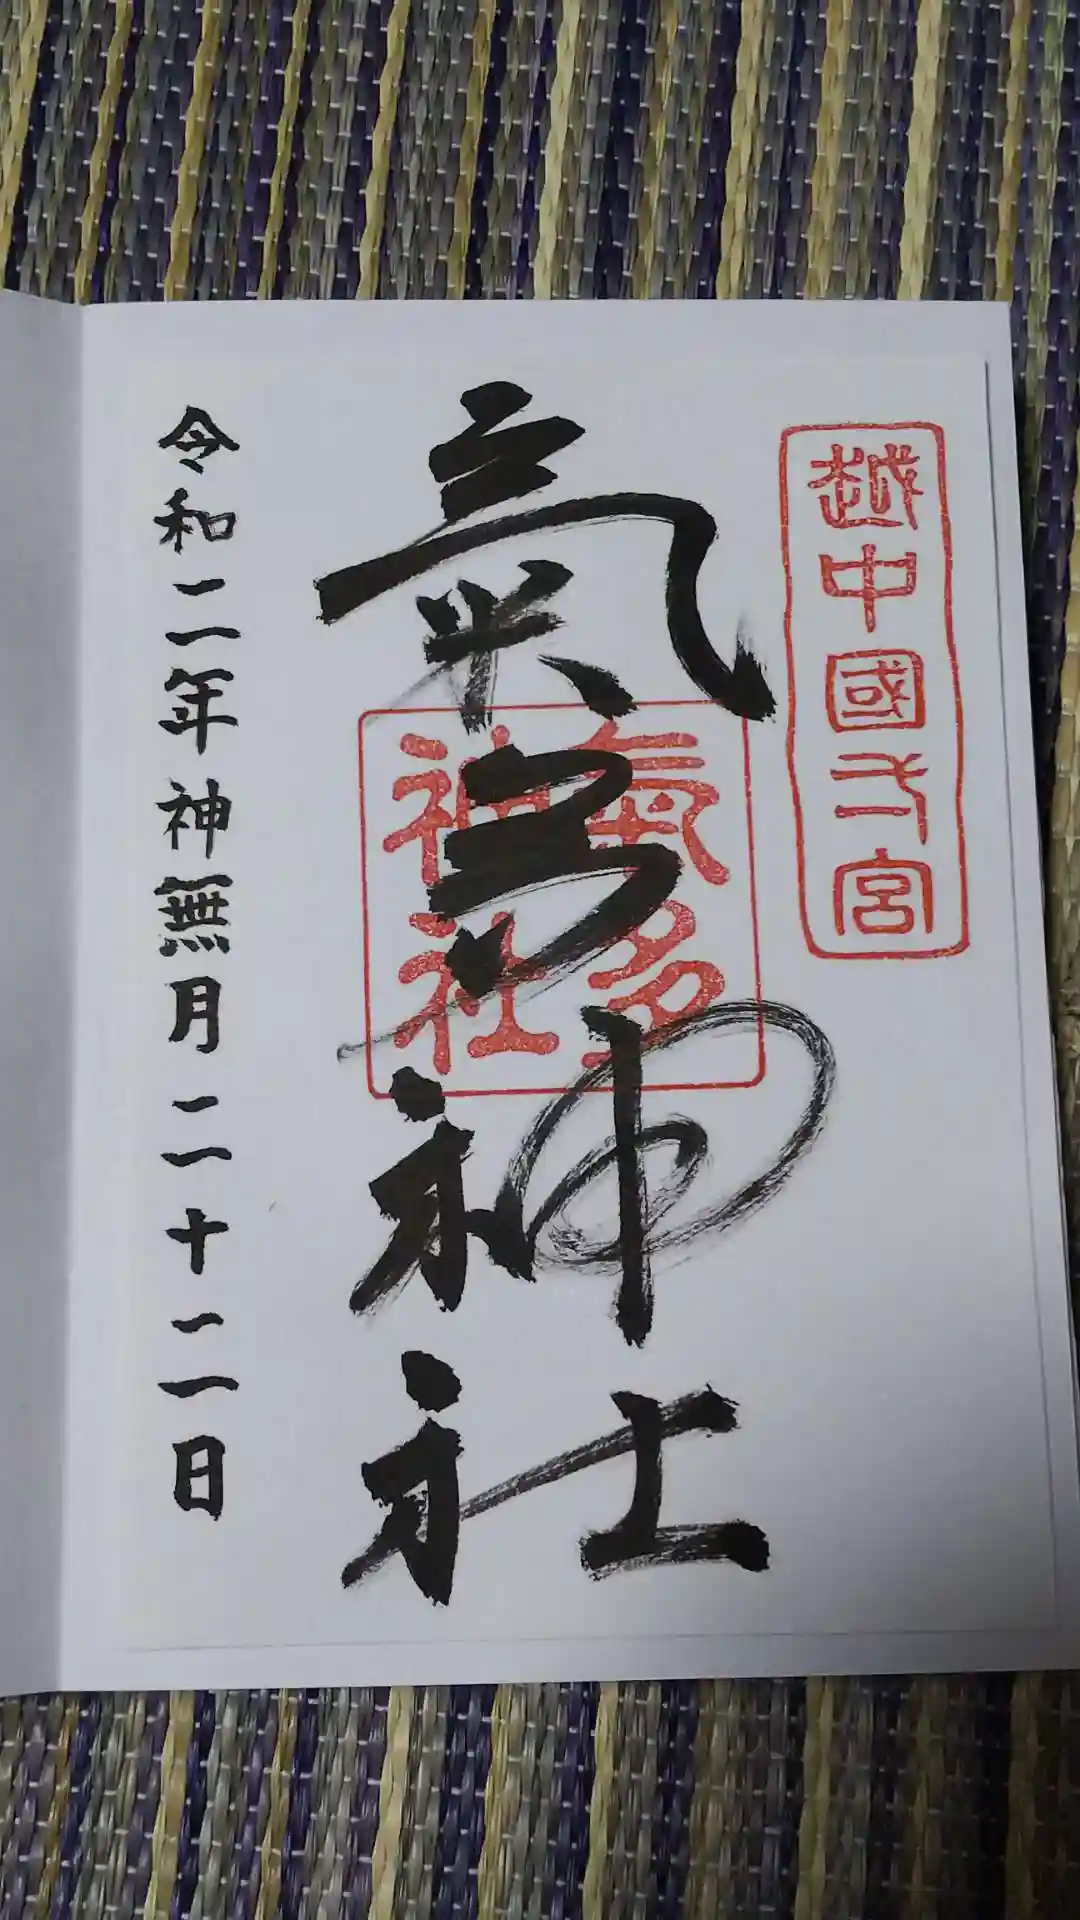 越中國一宮
氣多神社
氣多神社
令和二年神無月二十二日